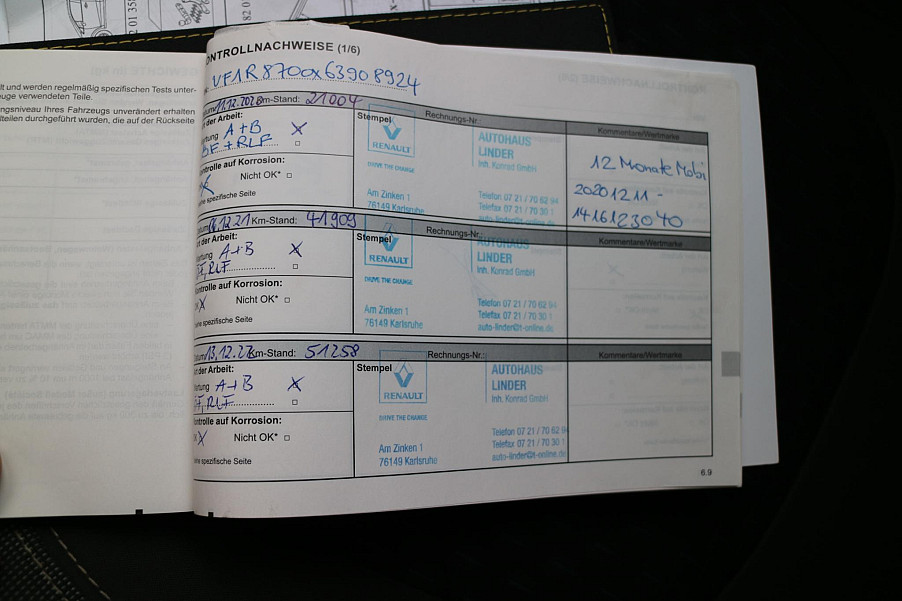 82 01 35
82 0
lt und werden regelmäßig spezifischen Tests unter-
uge verwendeten Teile.
ngsniveau Ihres Fahrzeugs unverändert erhalten
lteilen durchgeführt wurden, die auf der Rückseite
ONTROLLNACHWEISE (1/6)
VF1R8700x63908924
Km-Stand: 21004
Rechnungs-Nr.:
Kommentare/Wertmarke
der Arbeit:
A+B X
+ RLF
Stempel
RENAULT
DRIVE THE CHANGE
Am Zinken 1
76149 Karlsruhe
AUTOHAUS
LINDER
Inh. Konrad GmbH
Telefon 07 21 / 70 62 94
Telefax 07 21 / 70 30 1
auto-linder@t-online.de
12 Monate Mobi
20201211-
1416123040
ntrolle auf Korrosion:
Nicht OK*
ne spezifische Seite
.12.21 Km-Stand: 41909
Rechnungs-Nr.:
Kommentare/Wertmarke
der Arbeit:
rtung A+B X
RLF
Stempel
RENAULT
DRIVE THE CHANGE
Am Zinken 1
76149 Karlsruhe
AUTOHAUS
LINDER
Inh. Konrad GmbH
Telefon 07 21 / 70 62 94
Telefax 07 21 / 70 30 1
auto-linder@t-online.de
ntrolle auf Korrosion:
X Nicht OK*
ne spezifische Seite
13.12.22 Km-Stand: 51258
Rechnungs-Nr.:
Kommentare/Wertmarke
der Arbeit:
rtung A+B X
RLF
Stempel
RENAULT
DRIVE THE CHANGE
Am Zinken 1
76149 Karlsruhe
AUTOHAUS
LINDER
Inh. Konrad GmbH
Telefon 07 21 / 70 62 9
Telefax 07 21 / 70 30 1
auto-linder@t-online.de
ntrolle auf Korrosion:
X Nicht OK*
ne spezifische Seite
6.9